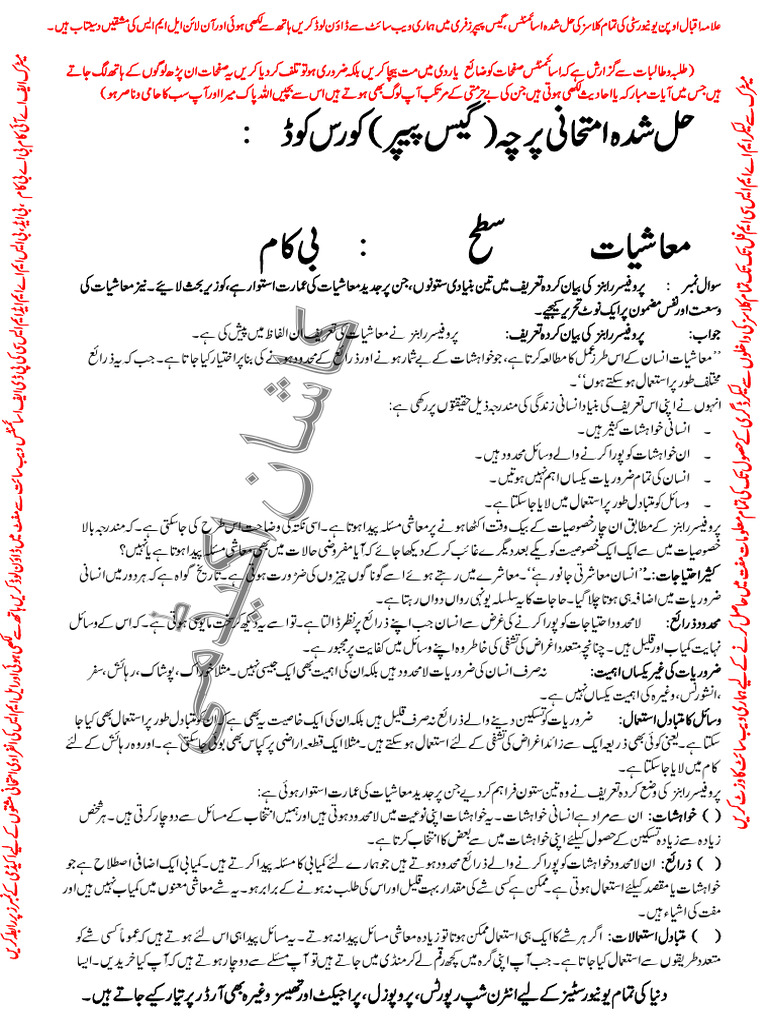 علامہ اقبال اوپن یونیورسٹی کی تمام کلاسز کی حل شدہ اسائنمنٹس، گیس پیپرز فری میں ہماری ویب سائٹ سے ڈاؤن لوڈ کریں ہاتھ سے لکھی ہوئی اور آن لائن ایل ایم ایس کی مشقیں دستیاب ہیں۔
(طلبہ و طالبات سے گزارش ہے کہ اسائنمنٹس صفحات کو ضائع یا ردی میں مت بیچا کریں بلکہ ضروری ہو تو تلف کر دیا کریں یہ صفحات ان پڑھ لوگوں کے ہاتھ لگ جاتے
ہیں جس میں آیات مبارکہ یا احادیث لکھی ہوتی ہیں جن کی بے حرمتی کے مرتکب آپ لوگ بھی ہوتے ہیں اس سے بچیں اللہ پاک میرا اور آپ سب کا حامی و ناصر ہو)
حل شدہ امتحانی پرچہ (گیس پیپر) کورس کوڈ :
معاشیات سطح : بی کام
سوال نمبر : پروفیسر رابنز کی بیان کردہ تعریف میں تین بنیادی ستونوں، جن پر جدید معاشیات کی عمارت استوار ہے، کو زیر بحث لائیے۔ نیز معاشیات کی
وسعت اور نفس مضمون پر ایک نوٹ تحریر کیجیے۔
جواب: پروفیسر رابنز کی بیان کردہ تعریف: پروفیسر رابنز نے معاشیات کی تعریف ان الفاظ میں پیش کی ہے۔
’’معاشیات انسان کے اس طرز عمل کا مطالعہ کرتا ہے، جو خواہشات کے بے شمار ہونے اور ذرائع کے محدود ہونے کی بنا پر اختیار کیا جاتا ہے۔ جب کہ یہ ذرائع
مختلف طور پر استعمال ہو سکتے ہوں‘‘۔
انہوں نے اپنی اس تعریف کی بنیاد انسانی زندگی کی مندرجہ ذیل حقیقتوں پر رکھی ہے:
۔ انسانی خواہشات کثیر ہیں۔
۔ ان خواہشات کو پورا کرنے والے وسائل محدود ہیں۔
۔ انسان کی تمام ضروریات یکساں اہم نہیں ہوتیں۔
۔ وسائل کو متبادل طور پر استعمال میں لایا جا سکتا ہے۔
پروفیسر رابنز کے مطابق ان چار خصوصیات کے بیک وقت اکٹھا ہونے پر معاشی مسئلہ پیدا ہوتا ہے۔ اسی نکتہ کی وضاحت اس طرح کی جا سکتی ہے۔ کہ مندرجہ بالا
خصوصیات میں سے ایک ایک خصوصیت کو یکے بعد دیگرے غائب کر کے دیکھا جائے کہ آیا مفروضی حالات میں بھی معاشی مسئلہ پیدا ہوتا ہے یا نہیں؟
کثیر احتیاجات:۔ ’’انسان معاشرتی جانور ہے‘‘۔ معاشرے میں رہتے ہوئے اسے گونا گوں چیزوں کی ضرورت ہوتی ہے۔ تاریخ گواہ ہے کہ ہر دور میں انسانی
ضروریات میں اضافہ ہی ہوتا چلا گیا۔ حاجات کا یہ سلسلہ یونہی رواں دواں رہتا ہے۔
محدود ذرائع: لامحدود احتیاجات کو پورا کرنے کی غرض سے انسان جب اپنے ذرائع پر نظر ڈالتا ہے۔ تو اسے یہ دیکھ کر سخت مایوسی ہوتی ہے۔ کہ اس کے وسائل
نہایت کمیاب اور قلیل ہیں۔ چنانچہ متعدد اغراض کی تشفی کی خاطر وہ اپنے وسائل میں کفایت پر مجبور ہے۔
ضروریات کی غیر یکساں اہمیت: نہ صرف انسان کی ضروریات لامحدود ہیں بلکہ ان کی اہمیت بھی ایک جیسی نہیں۔ مثلاً خوراک، پوشاک، رہائش، سفر
، انشورنس، وغیرہ کی اہمیت یکساں نہیں ہے۔
وسائل کا متبادل استعمال: ضروریات کو تسکین دینے والے ذرائع نہ صرف قلیل ہیں بلکہ ان کی ایک خاصیت یہ بھی ہے کہ ان کو متبادل طور پر استعمال بھی کیا جا
سکتا ہے۔ یعنی کوئی بھی ذریعہ ایک سے زائد اغراض کی تشفی کے لئے استعمال ہو سکتے ہیں۔ مثلاً ایک قطعہ اراضی پر کپاس بھی بوئی جا سکتی ہے۔ اور وہ رہائش کے لئے
کام میں لایا جا سکتا ہے۔
پروفیسر رابنز کی وضع کردہ تعریف نے وہ تین ستون فراہم کر دیے جن پر جدید معاشیات کی عمارت استوار ہوئی ہے:
( ) خواہشات: ان سے مراد ہے انسانی خواہشات۔ یہ خواہشات اپنی نوعیت میں لامحدود ہوتی ہیں اور ہمیں انتخاب کے مسائل سے دوچار کرتی ہیں۔ ہر شخص
زیادہ سے زیادہ تسکین کے حصول کیلئے اپنی خواہشات میں سے بعض کا انتخاب کرتا ہے۔
( ) ذرائع: ان لامحدود خواہشات کو پورا کرنے والے ذرائع محدود ہوتے ہیں جو ہمارے لئے کمیابی کا مسئلہ پیدا کرتے ہیں۔ کمیابی ایک اضافی اصطلاح ہے جو
خواہشات یا مقصد کیلئے استعمال ہوتی ہے۔ ممکن ہے کسی شے کی مقدار بہت قلیل اور اس کی طلب نہ ہونے کے برابر ہو۔ یہ شے معاشی معنوں میں کمیاب نہیں ہیں اور
مفت کی اشیاء ہیں۔
( ) متبادل استعمالات: اگر ہر شے کا ایک ہی استعمال ممکن ہوتا تو زیادہ معاشی مسائل پیدا نہ ہوتے۔ یہ مسائل پیدا ہی اس لئے ہوتے ہیں کہ عموماً کسی شے کو
متعدد طریقوں سے استعمال کیا جا سکتا ہے۔ جب آپ اپنی گرہ میں کچھ رقم لے کر منڈی میں جاتے ہیں تو آپ مسئلے سے دوچار ہوتے ہیں کہ آپ کیا خریدیں۔ ایسا
دنیا کی تمام یونیورسٹیز کے لیے انٹرن شپ رپورٹس، پروپوزل، پراجیکٹ اور تھیسز وغیرہ بھی آرڈر پر تیار کیے جاتے ہیں۔
میٹرک سے لیکر ایم اے ایم ایس سی ایم فل تک تمام کلاسز کی داخلوں سے لیکر ڈگری کے حصول تک کی تمام معلومات مفت میں حاصل کرنے کے لیے ہماری ویب سائٹ کا وزٹ کریں
کاشان اکیڈمی